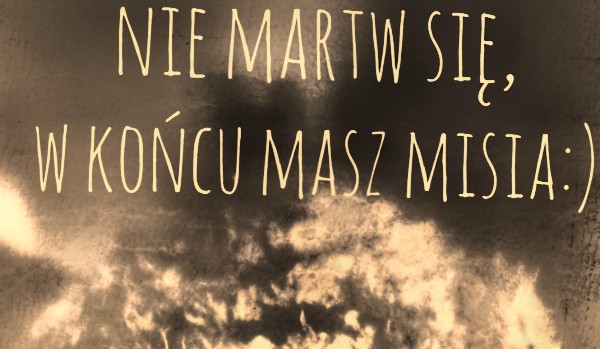 NIE MARTW SIĘ,
W KOŃCU MASZ MISIA:)